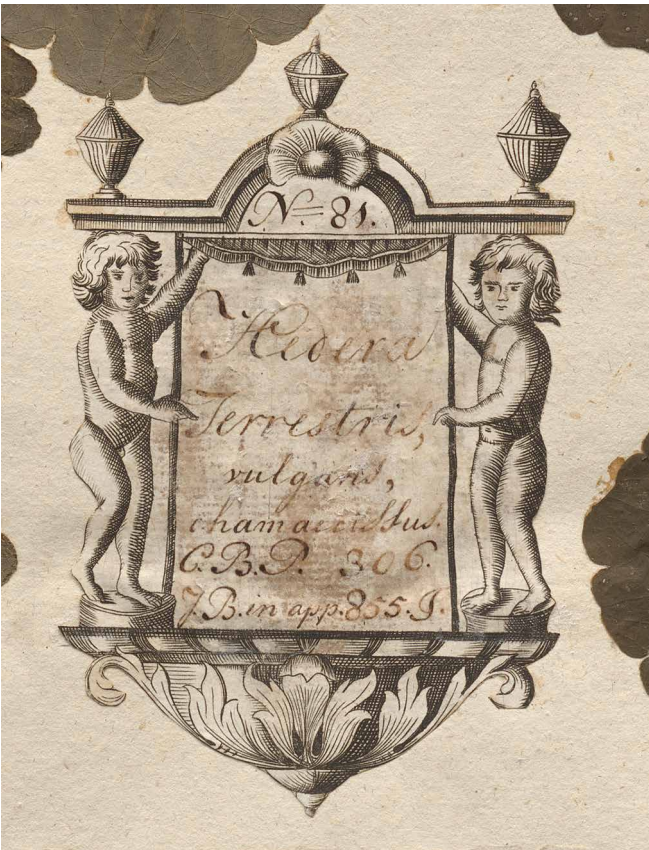 N= 81.
Hedera
Terrestris,
vulgaris,
chamaecissus.
C.B.P. 306.
J.B. in app. 855. I.